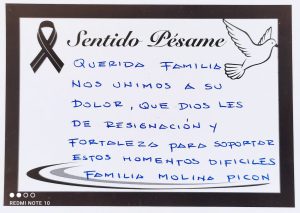 Sentido Pésame
QUERIDA FAMILIA
NOS UNIMOS A SU
DOLOR, QUE DIOS LES
DE RESIGNACIÓN Y
FORTALEZA PARA SOPORTAR
ESTOS MOMENTOS DIFICILES
FAMILIA MOLINA PICON
REDMI NOTE 10